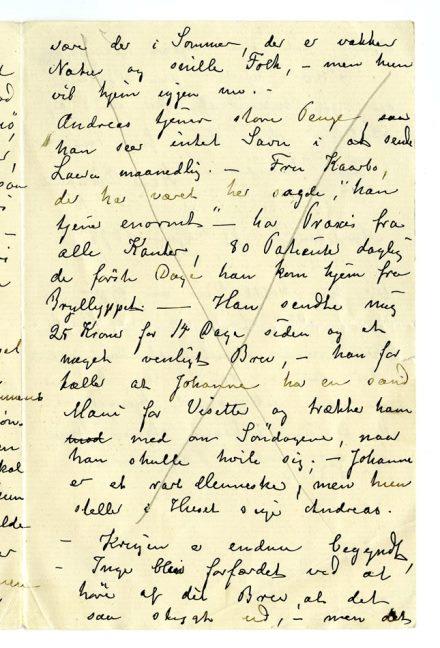 være der i Sommer, der er vakker
Natur og snille Folk, – men hun
vil hjem igjen nu. –
Andreas tjener store Penge, saa
han ser intet Savn i at sende
Laura maanedlig. – Fru Kaarbo,
der har været her sagde, "han
tjener enormt" – har Praxis fra
alle Kanter, 80 Patienter daglig
de første Dage han kom hjem fra
Bryllyppet. — Han sendte mig
25 Kroner for 14 Dage siden og et
meget venligt Brev, – han for
tæller at Johanne har en sand
Mani for Visitter og trække ham
med om Søndagene, naar
han skulle hvile sig; – Johanne
er et rart Menneske, men hun
steller i Huset siger Andreas.
– Krigen er endnu begyndt,
– Inge blev forfærdet ved at
høre af dit Brev, at det
saa stygt ud, – men det